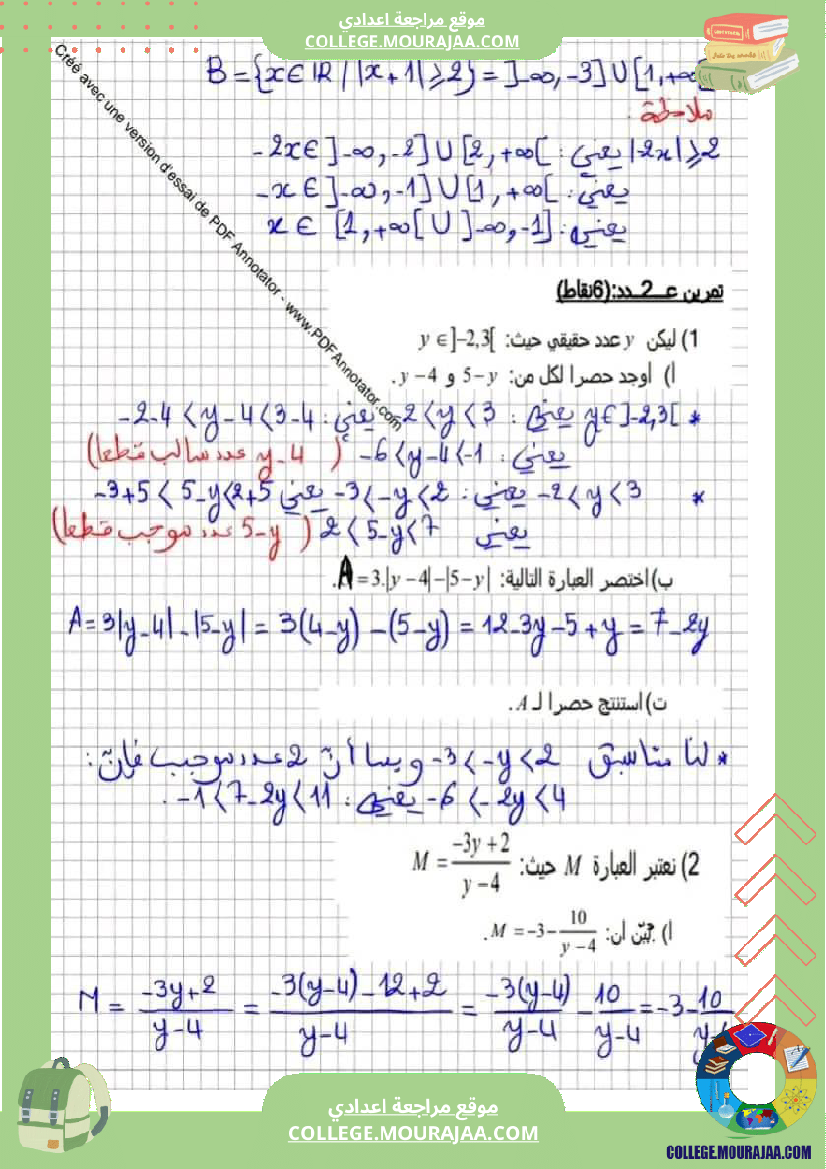 موقع مراجعة اعدادي
COLLEGE.MOURAJAA.COM
Créé avec une version d'essai de PDF Annotator - www.PDFAnnotator.com
B = {x ∈ IR / |x + 1| ⩾ 2} = ]-∞, -3] ∪ [1, +∞[
ملاحظة:
|-2x| ⩾ 2 يعني: -2x ∈ ]-∞, -2] ∪ [2, +∞[
يعني: -x ∈ ]-∞, -1] ∪ [1, +∞[
يعني: x ∈ [1, +∞[ ∪ ]-∞, -1]
تمرين عـ2ـدد:(6نقاط)
1) ليكن y عدد حقيقي حيث: y ∈ ]-2,3[
أ) أوجد حصرا لكل من: 5-y و y-4.
* y ∈ ]-2,3[ يعني: -2 < y < 3 يعني: -2-4 < y-4 < 3-4
يعني: -6 < y-4 < -1 (y-4 عدد سالب قطعا)
* -2 < y < 3 يعني: -3 < -y < 2 يعني -3+5 < 5-y < 2+5
يعني 2 < 5-y < 7 (5-y عدد موجب قطعا)
ب) اختصر العبارة التالية: A = 3.|y-4| - |5-y|.
A = 3|y-4| - |5-y| = 3(4-y) - (5-y) = 12-3y-5+y = 7-2y
ت) استنتج حصرا لـ A.
* لنا مما سبق -3 < -y < 2 وبما أنّ 2 عدد موجب فإنّ:
-6 < -2y < 4 يعني: -1 < 7-2y < 11.
2) نعتبر العبارة M حيث: M = \frac{-3y+2}{y-4}
أ) بيّن أن: M = -3 - \frac{10}{y-4}.
M = \frac{-3y+2}{y-4} = \frac{-3(y-4)-12+2}{y-4} = \frac{-3(y-4)}{y-4} - \frac{10}{y-4} = -3 - \frac{10}{y-4}
موقع مراجعة اعدادي
COLLEGE.MOURAJAA.COM
COLLEGE.MOURAJAA.COM